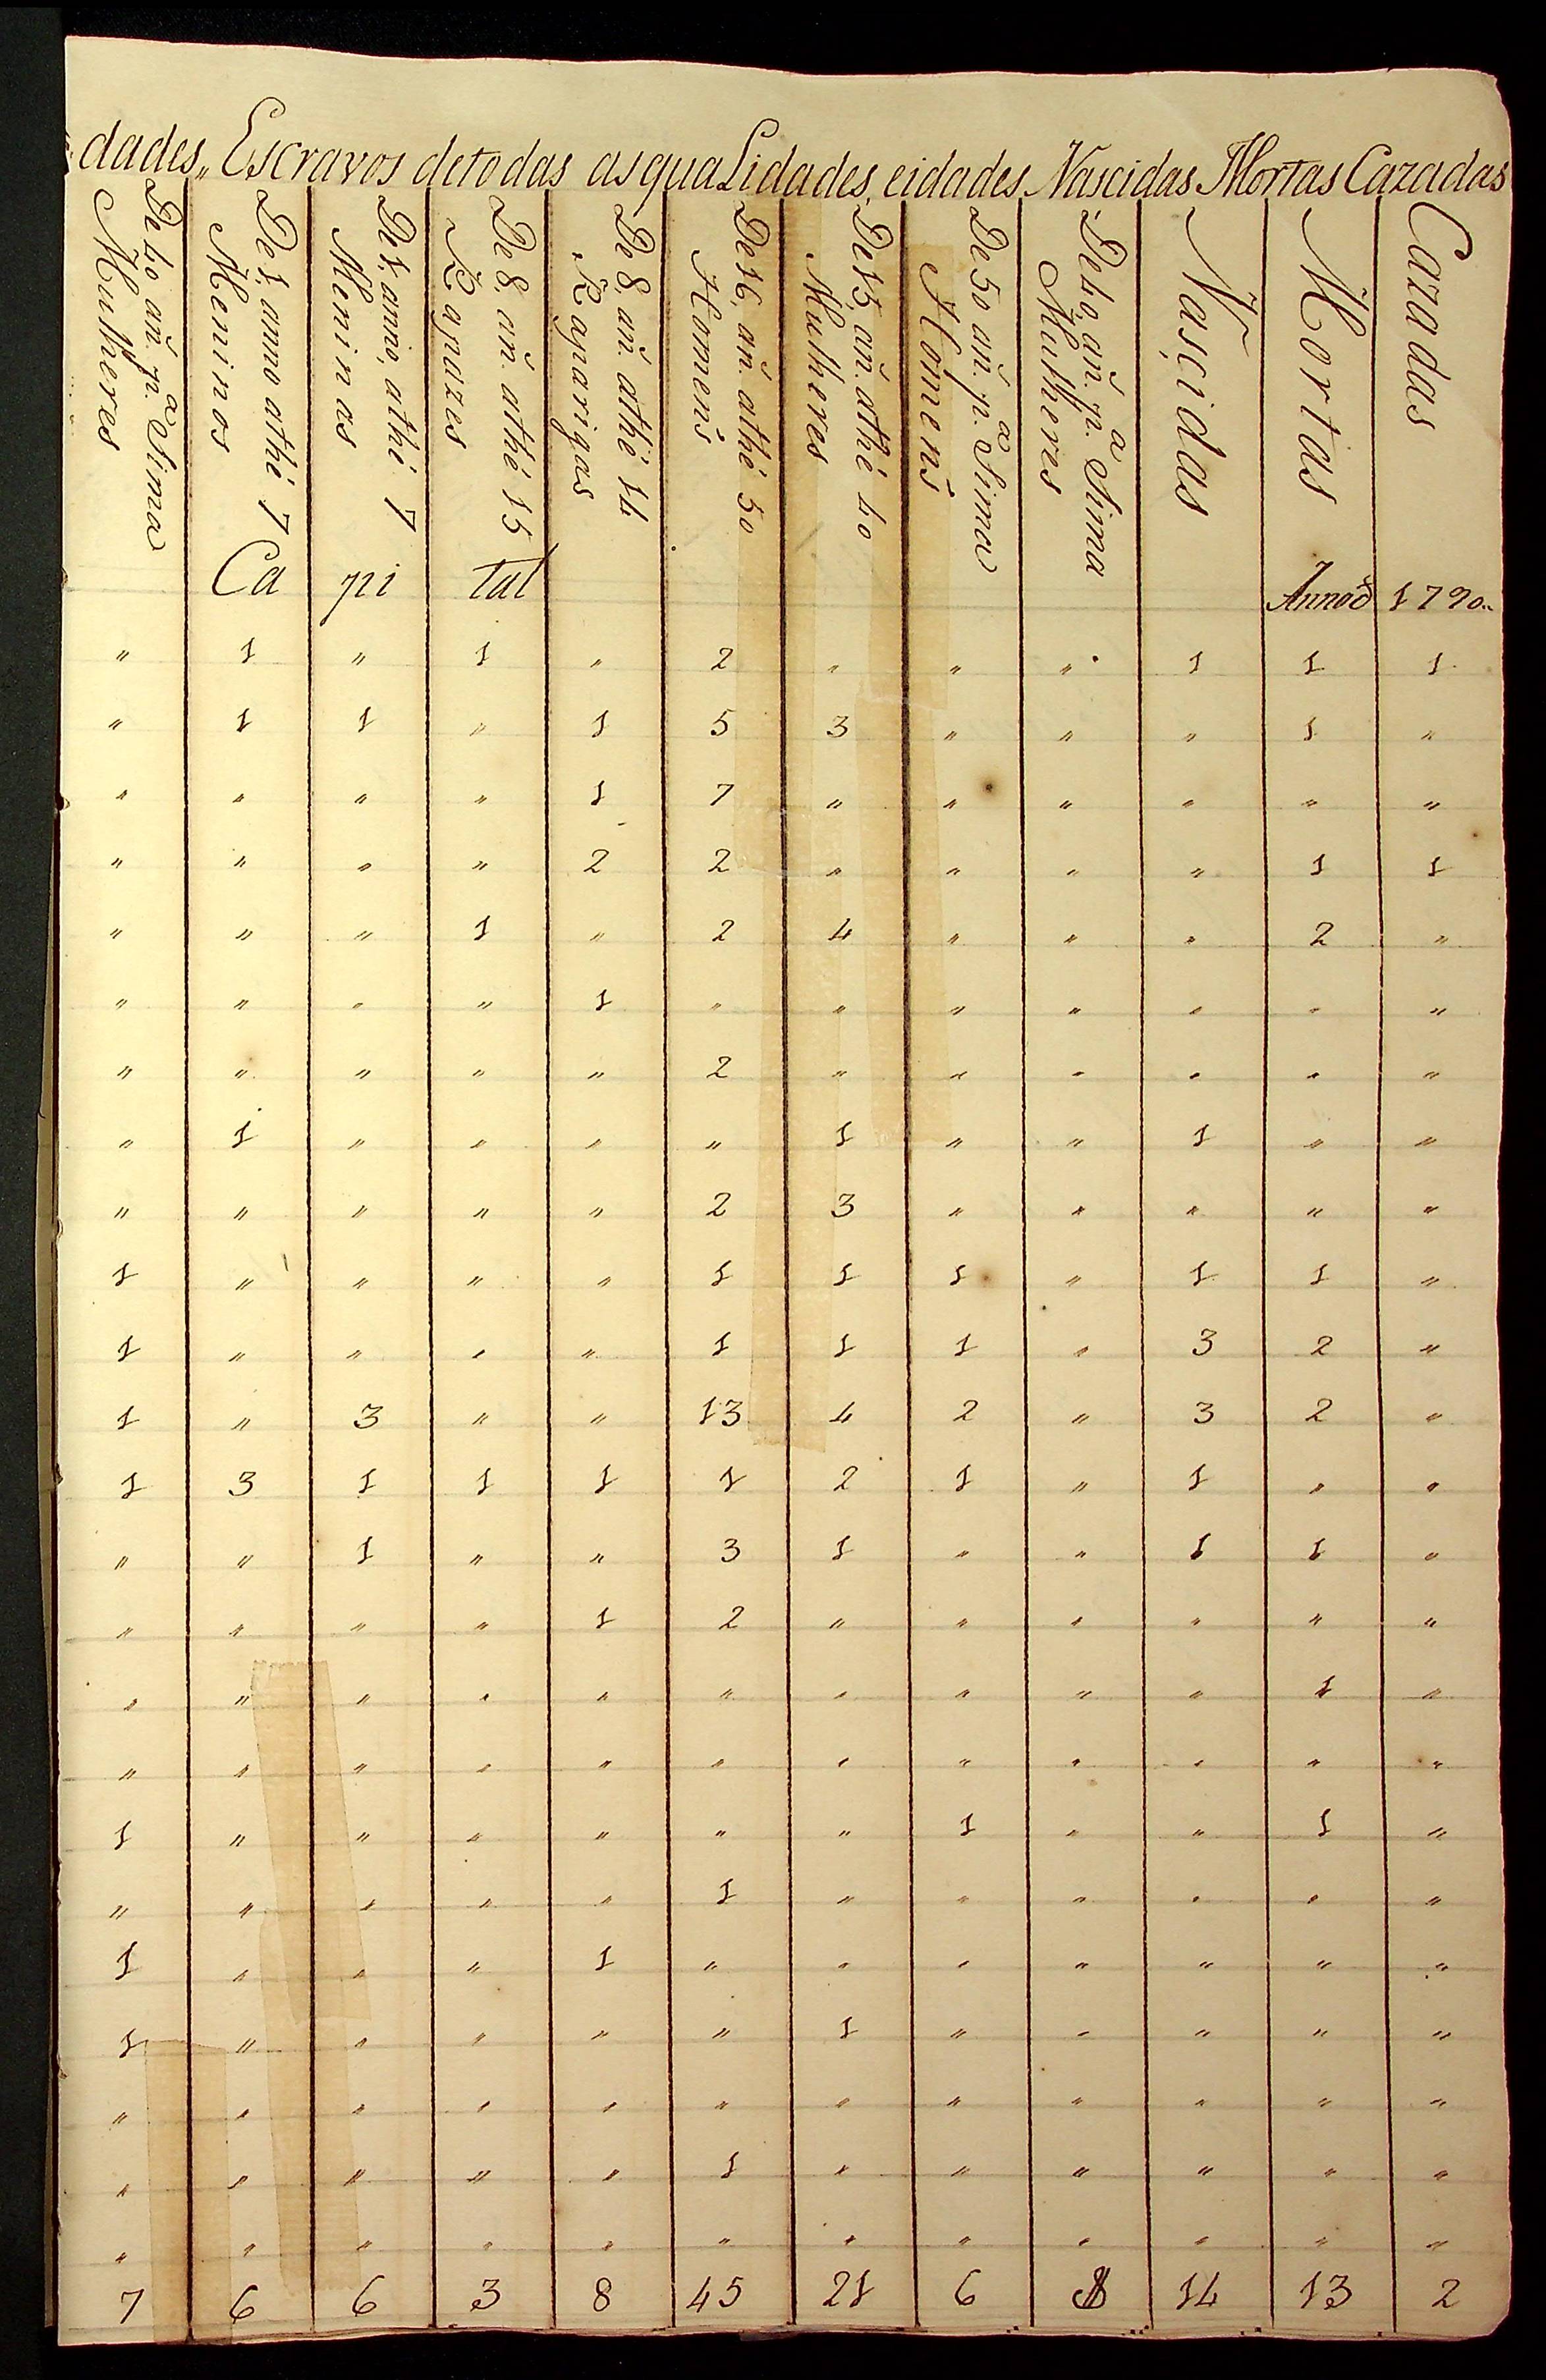 dades,, Escravos detodas asquaLidades, eidades Nascidas Mortas Cazadas
De 40 an̄. p.ª Sima Mulheres
De 1, anno athé 7 Meninos
De 1, anno, athé 7 Meninas
De 8, an̄. athé 15 Rapazes
De 8, an̄. athé 14 Raparigas
De 16, an̄. athé 50 Homens
De 15, an̄. athé 40 Mulheres
De 50 an̄. p.ª Sima Homens
De 40, an̄. p.ª Sima Mulheres
Nascidas
Mortas
Cazadas
Ca pi tal Anno d 1790..
" 1 " 1 " 2 " " " 1 1 1
" 1 1 " 1 5 3 " " " 1 "
" " " " 1 7 " " " " " "
" " " " 2 2 " " " " 1 1
" " " 1 " 2 4 " " " 2 "
" " " " 1 " " " " " " "
" " " " " 2 " " " " " "
" 1 " " " " 1 " " 1 " "
" " " " " 2 3 " " " " "
1 " " " " 1 1 1 " 1 1 "
1 " " " " 1 1 1 " 3 2 "
1 " 3 " " 13 4 2 " 3 2 "
1 3 1 1 1 1 2 1 " 1 " "
" " 1 " " 3 1 " " 1 1 "
" " " " 1 2 " " " " " "
" " " " " " " " " " 1 "
" " " " " " " " " " " "
1 " " " " " " 1 " " 1 "
" " " " " 1 " " " " " "
1 " " " 1 " " " " " " "
1 " " " " " 1 " " " " "
" " " " " " " " " " " "
" " " " " 1 " " " " " "
" " " " " " " " " " " "
7 6 6 3 8 45 21 6 14 13 2